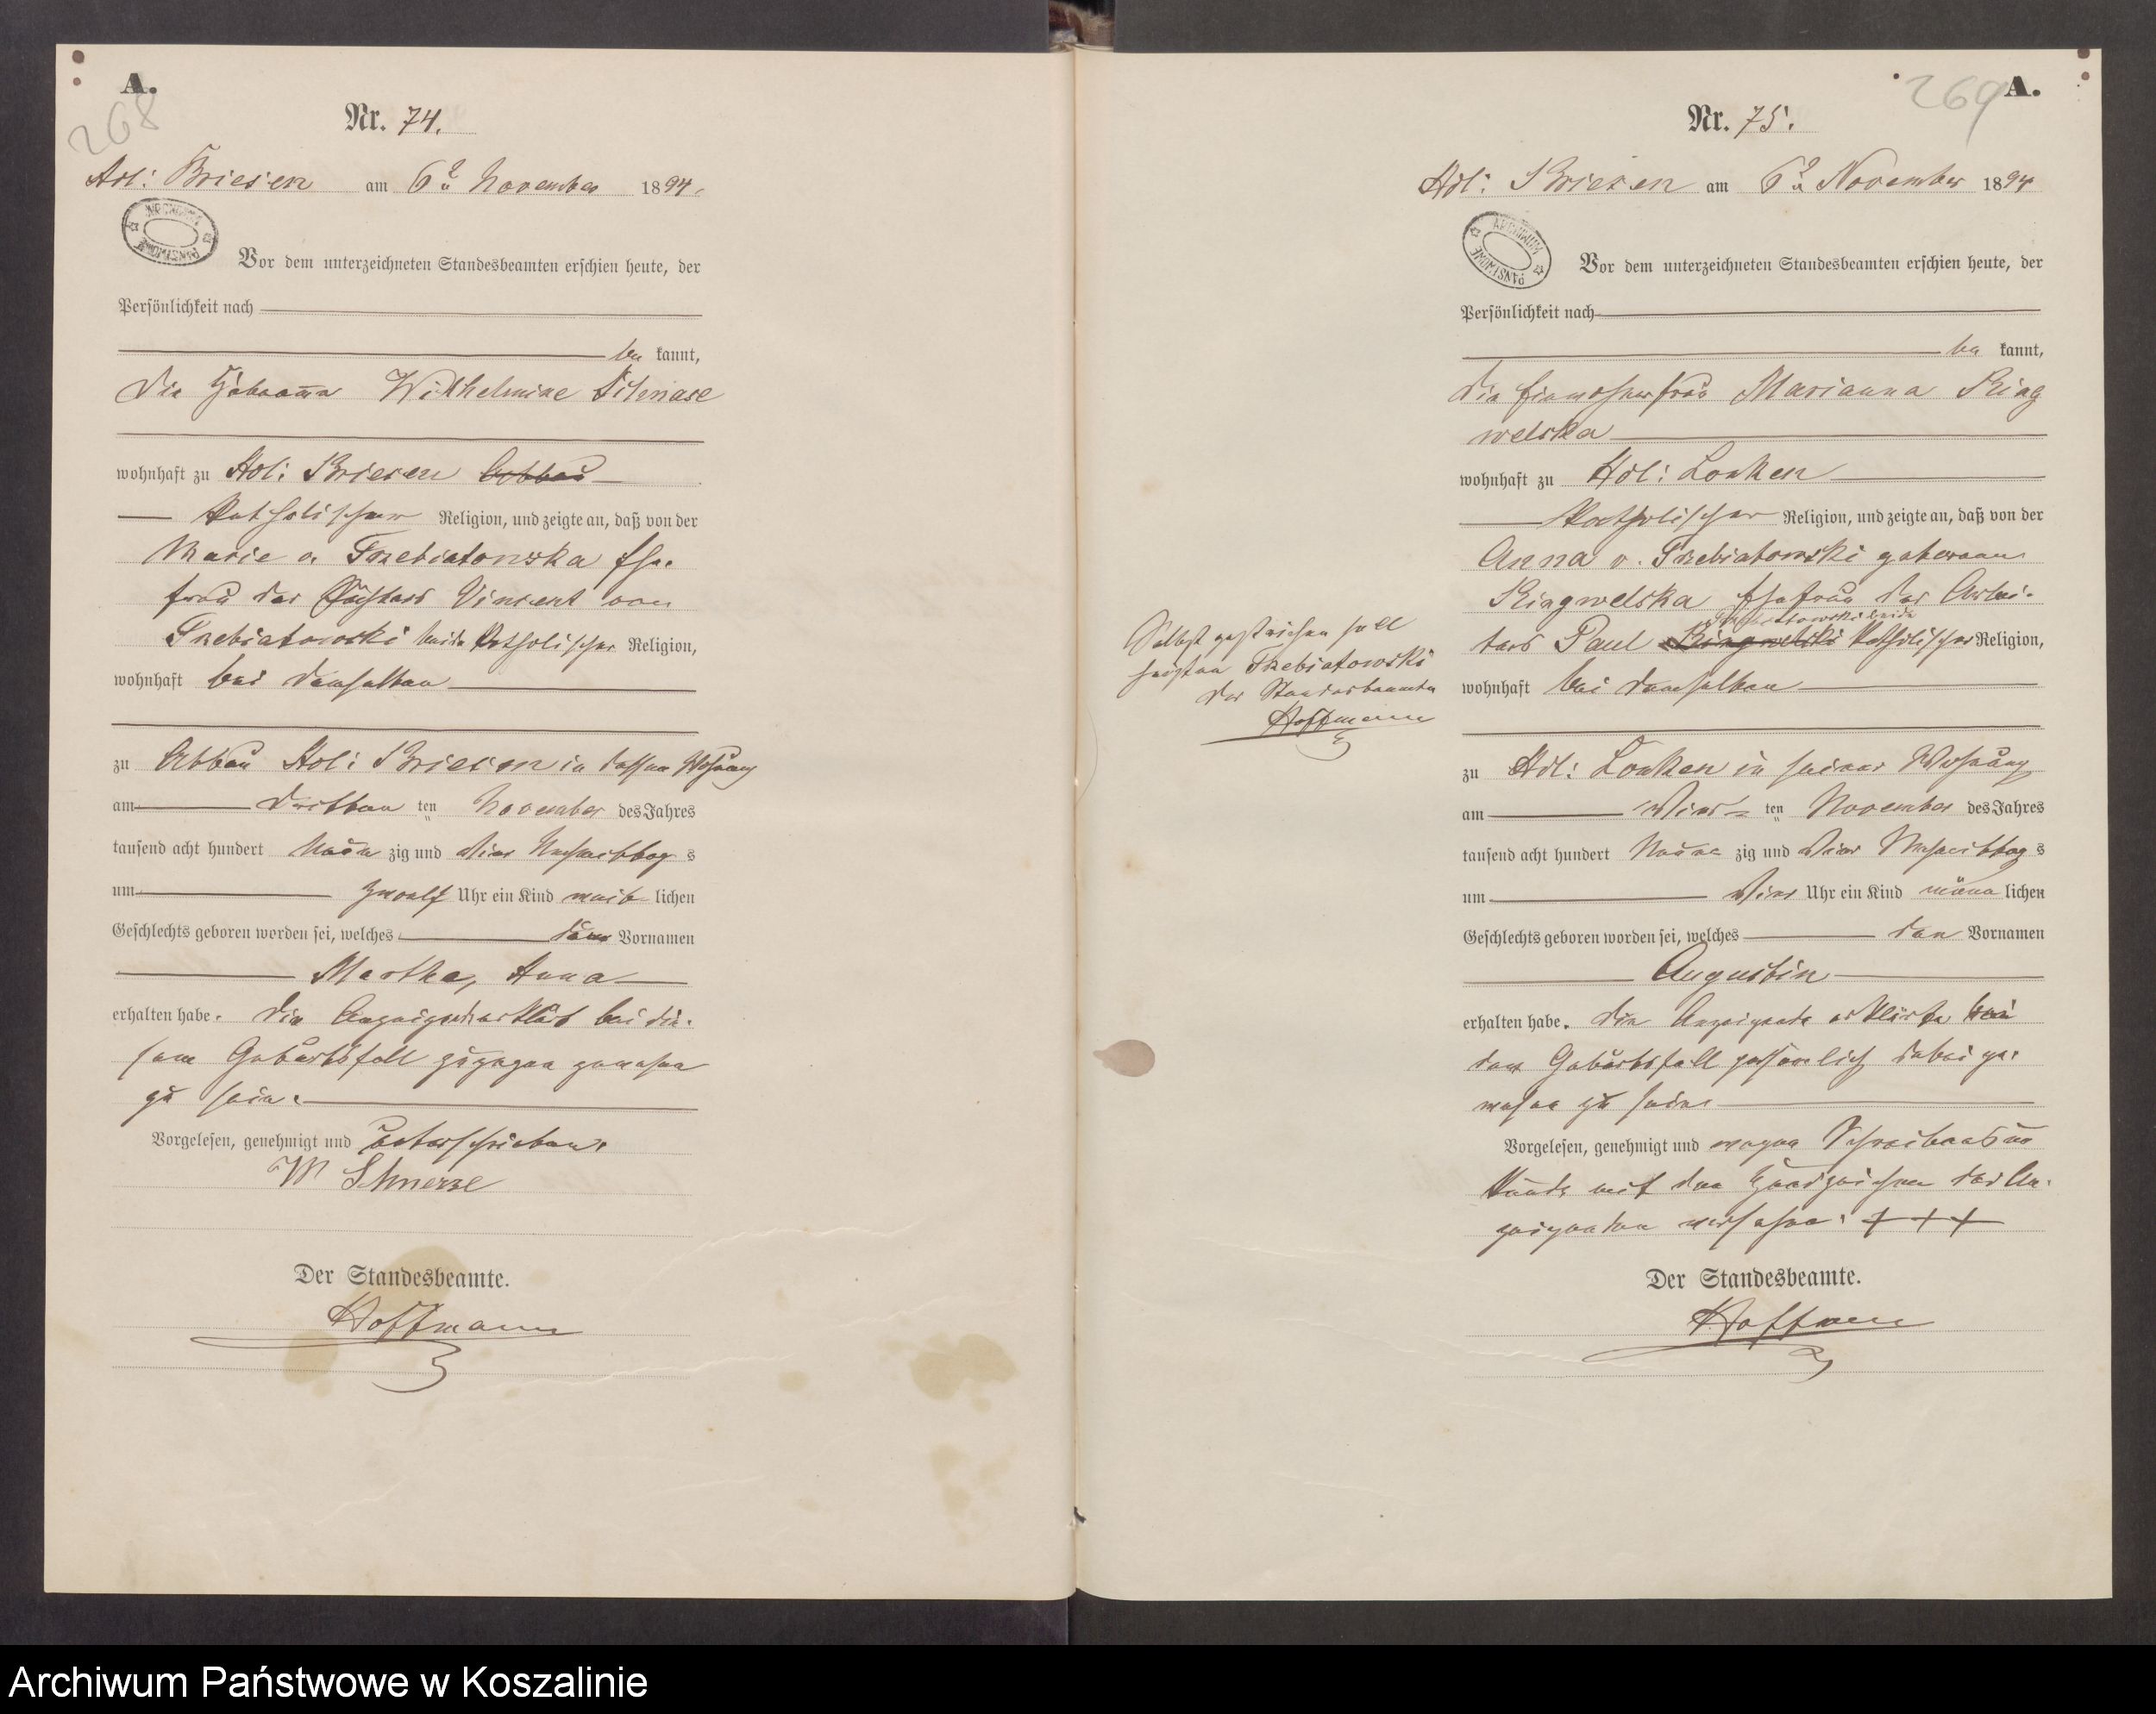 A.
268
Nr. 74.
Adl: Briesen am 6ten November 1894.
ARCHIWUM PAŃSTWOWE
Vor dem unterzeichneten Standesbeamten erschien heute, der
Persönlichkeit nach
be kannt,
die Hebamme Wilhelmine
wohnhaft zu Adl: Briesen Abbau
katholischer Religion, und zeigte an, daß von der
Marie v Trzebiatowska Ehe-
frau des Vincent von
Trzebiatowski beide katholischer Religion,
wohnhaft bei demselben
zu Abbau Adl: Briesen in dessen Wohnung
am dritten ten November des Jahres
tausend acht hundert neun zig und vier Nachmittag s
um zwoelf Uhr ein Kind weib lichen
Geschlechts geboren worden sei, welches den Vornamen
Martha, Anna
erhalten habe. die bei die-
sem Geburtsfall zugegen gewesen
zu sein.
Vorgelesen, genehmigt und unterschrieben.
W
Der Standesbeamte.
Hoffmann
269
A.
Nr. 75.
Adl: Briesen am 6ten November 1894
ARCHIWUM PAŃSTWOWE
Vor dem unterzeichneten Standesbeamten erschien heute, der
Persönlichkeit nach
be kannt,
die Einwohnerfrau Marianna Ring
welska
wohnhaft zu Adl: Lonken
katholischer Religion, und zeigte an, daß von der
Anna v. Trzebiatowski geborenen
Ringwelska Ehefrau des Arbei-
Trzebiatowski beide
ters Paul Ringwelski katholischer Religion,
wohnhaft bei demselben
Selbst gestrichen soll
heißen Trzebiatowski
Der Standesbeamte
Hoffmann
zu Adl: Lonken in seiner Wohnung
am vier ten November des Jahres
tausend acht hundert neun zig und vier Nachmittag s
um vier Uhr ein Kind männ lichen
Geschlechts geboren worden sei, welches den Vornamen
Augustin
erhalten habe. die Anzeigende erklärte bei
dem Geburtsfall persönlich dabei ge-
wesen zu sein.
Vorgelesen, genehmigt und wegen Schreibensun
kunde mit den Handzeichen der An-
zeigenden versehen: + + +
Der Standesbeamte.
Hoffmann
Archiwum Państwowe w Koszalinie